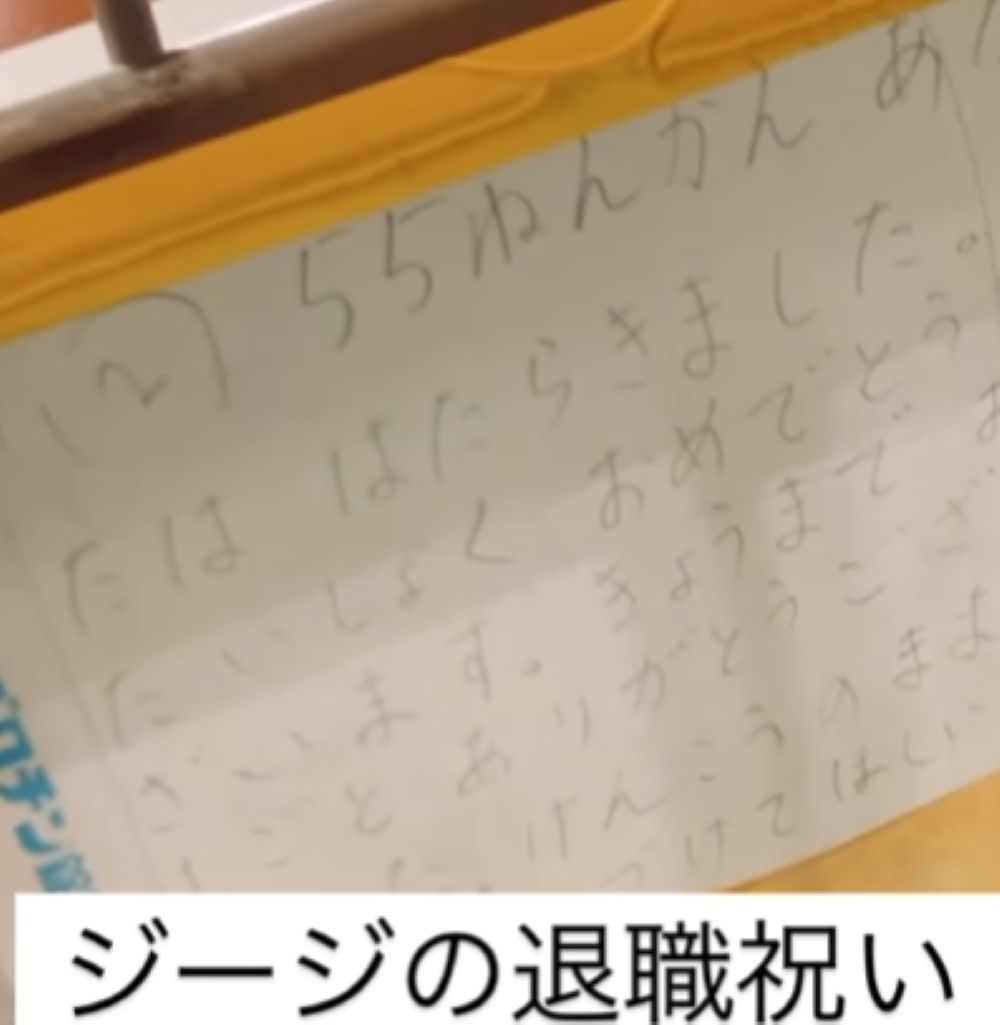 (2) 55ねんかん あ
たは はたらきました。
たいしょく おめでとう
ございます。 きょうまで お
ごと ありがとうござ
た。 けんこうのまま
づけてほしい
ジージの退職祝い